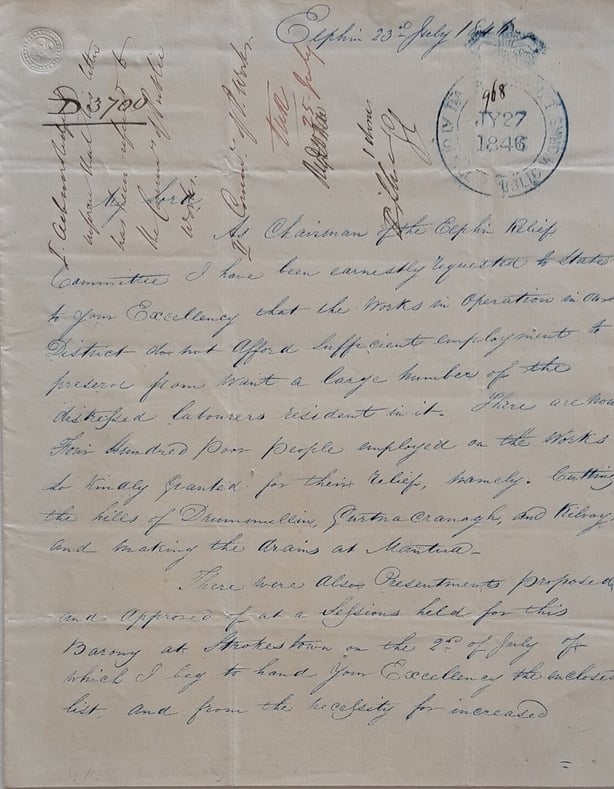 Elphin 23rd July 1846
D 3700
I Acknowledge
inform that this letter
has been referred to
the Comrs. of Public
Works.
Comrs. of P. Works
25 July
968
JY 27
1846
PUBLIC WORKS
My Lord
As Chairman of the Elphin Relief
Committee I have been earnestly requested to State
to Your Excellency that the Works in Operation in our
District do not Afford Sufficient employment to
preserve from Want a large Number of the
distressed labourers resident in it. There are now
Four Hundred Poor people employed on the Works
so kindly Granted for their relief, namely. Cutting
the hills of Drummullin, Gurtnacranagh, and Kilroy,
and making the drains at Mantua -
There were also Presentments proposed
and approved of at a Sessions held for this
Barony at Strokestown on the 2nd of July of
which I beg to hand Your Excellency the enclosed
list, and from the necessity for increased